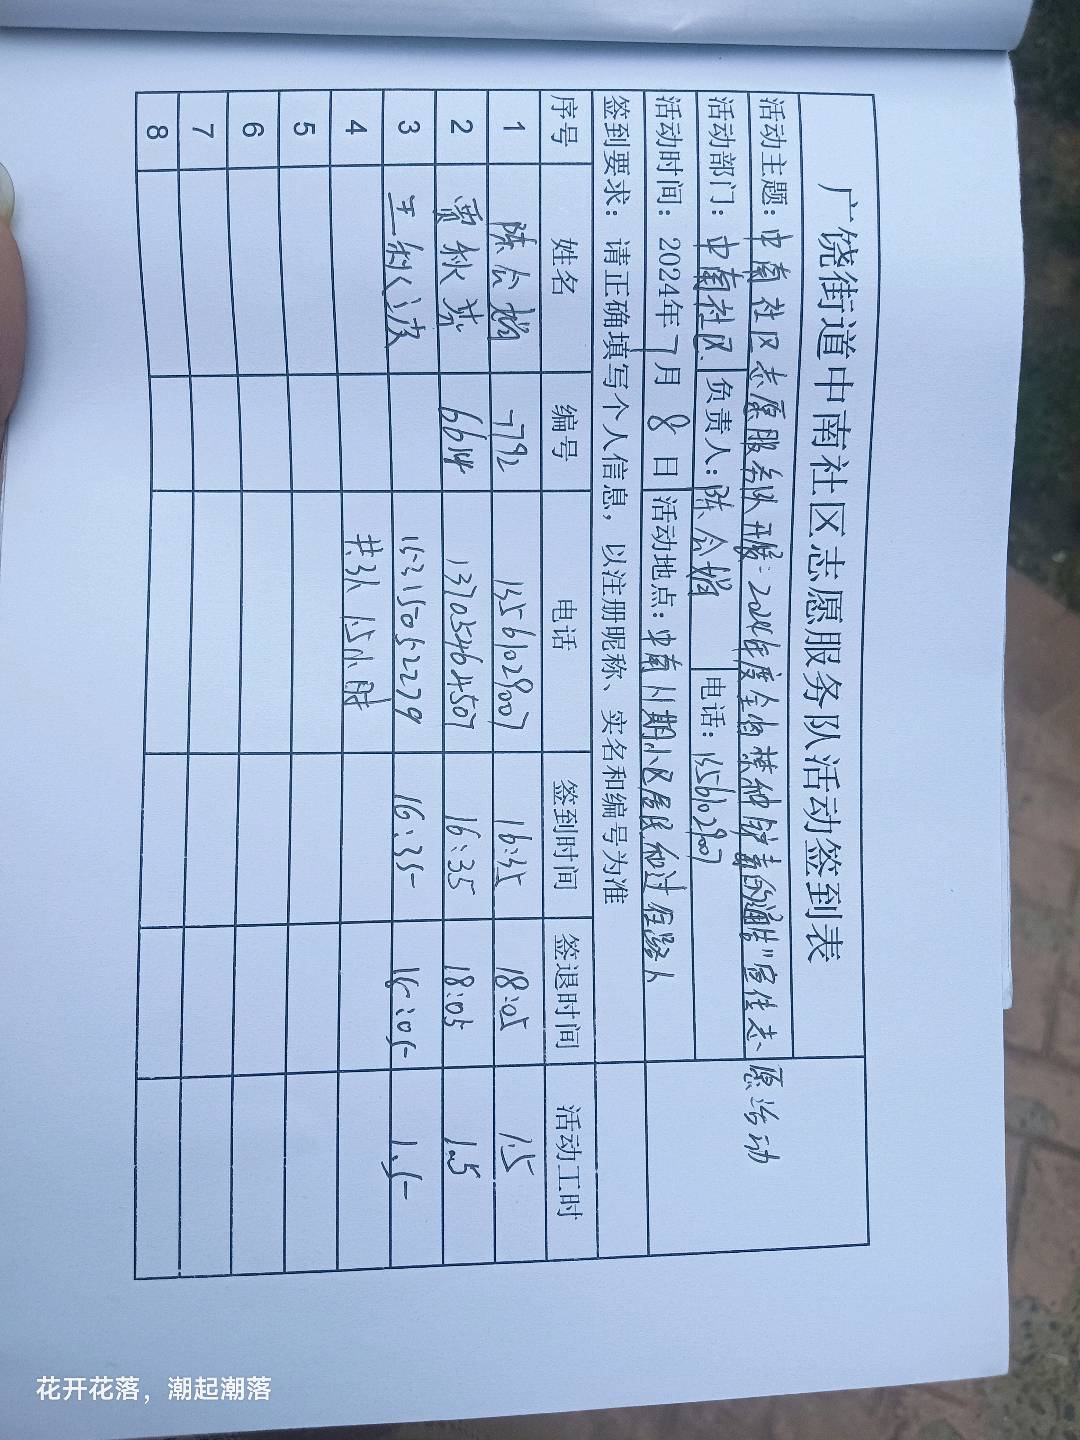 广饶街道中南社区志愿服务队活动签到表
活动主题：中南社区志愿服务队开展：2024年度全面禁种铲毒的通告"宣传志愿活动
活动部门：中南社区 负责人：陈会娟 电话：13561029007
活动时间：2024年7月8日 活动地点：中南小区居民和过往路人
签到要求：请正确填写个人信息，以注册昵称、实名和编号为准
序号 姓名 编号 电话 签到时间 签退时间 活动工时
1 陈会娟 7792 13561029007 16:35 18:05 1.5
2 贾秋 6614 13705464507 16:35 18:05 1.5
3 王秋波 15315052279 16:35 18:05 1.5
4 共3人 1.5小时
5
6
7
8
花开花落，潮起潮落